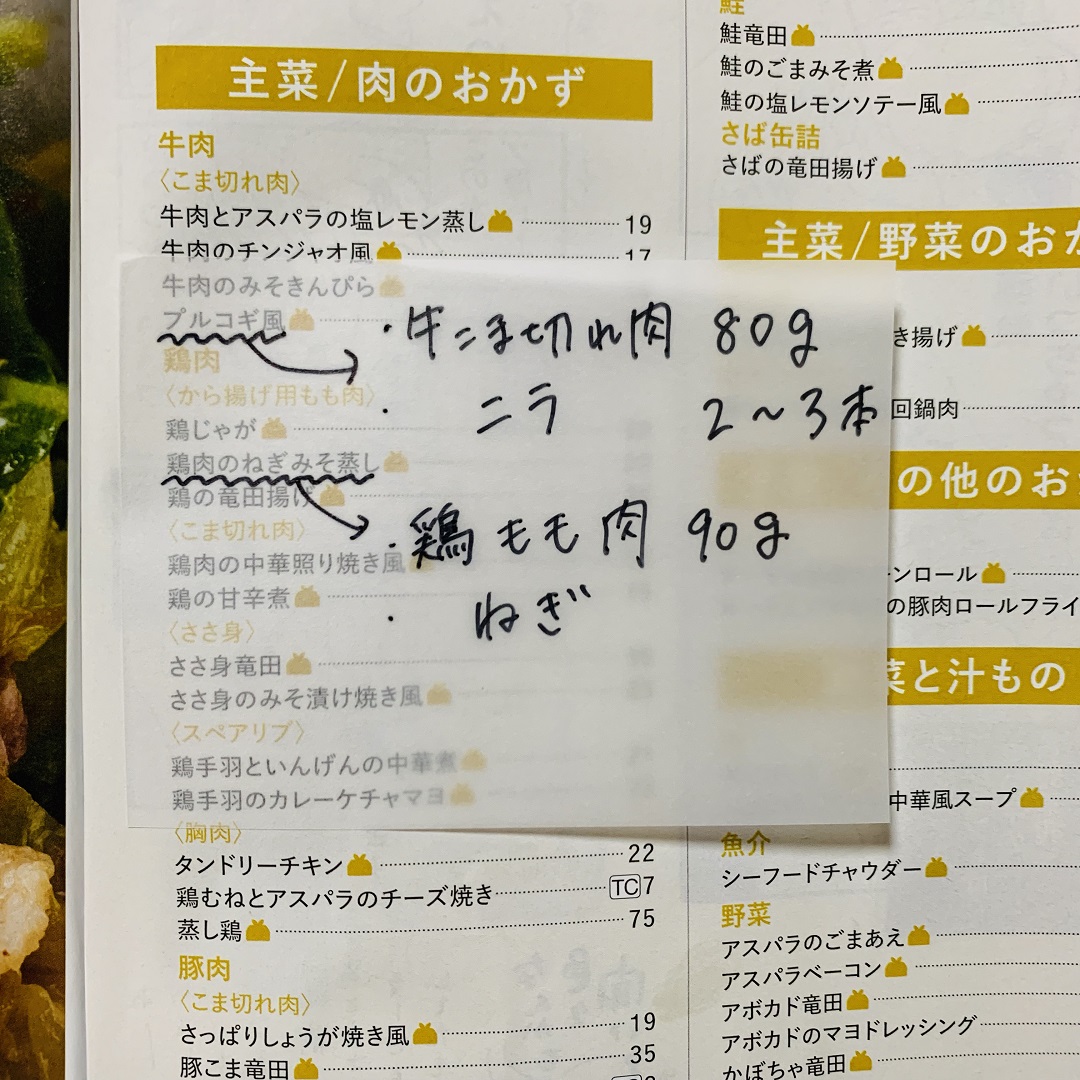 主菜/肉のおかず
牛肉
〈こま切れ肉〉
牛肉とアスパラの塩レモン蒸し 19
牛肉のチンジャオ風 17
牛肉のみそきんぴら
プルコギ風
鶏肉
〈から揚げ用もも肉〉
鶏じゃが
鶏肉のねぎみそ蒸し
鶏の竜田揚げ
〈こま切れ肉〉
鶏肉の中華照り焼き風
鶏の甘辛煮
〈ささ身〉
ささ身竜田
ささ身のみそ漬け焼き風
〈スペアリブ〉
鶏手羽といんげんの中華煮
鶏手羽のカレーケチャマヨ
〈胸肉〉
タンドリーチキン 22
鶏むねとアスパラのチーズ焼き TC7
蒸し鶏 75
豚肉
〈こま切れ肉〉
さっぱりしょうが焼き風 19
豚こま竜田 35
・牛こま切れ肉 80g
・ニラ 2〜3本
・鶏もも肉 90g
・ねぎ
鮭
鮭竜田
鮭のごまみそ煮
鮭の塩レモンソテー風
さば缶詰
さばの竜田揚げ
主菜/野菜のおか
き揚げ
回鍋肉
の他のお
ンロール
の豚肉ロールフライ
菜と汁もの
中華風スープ
魚介
シーフードチャウダー
野菜
アスパラのごまあえ
アスパラベーコン
アボカド竜田
アボカドのマヨドレッシング
かぼちゃ竜田